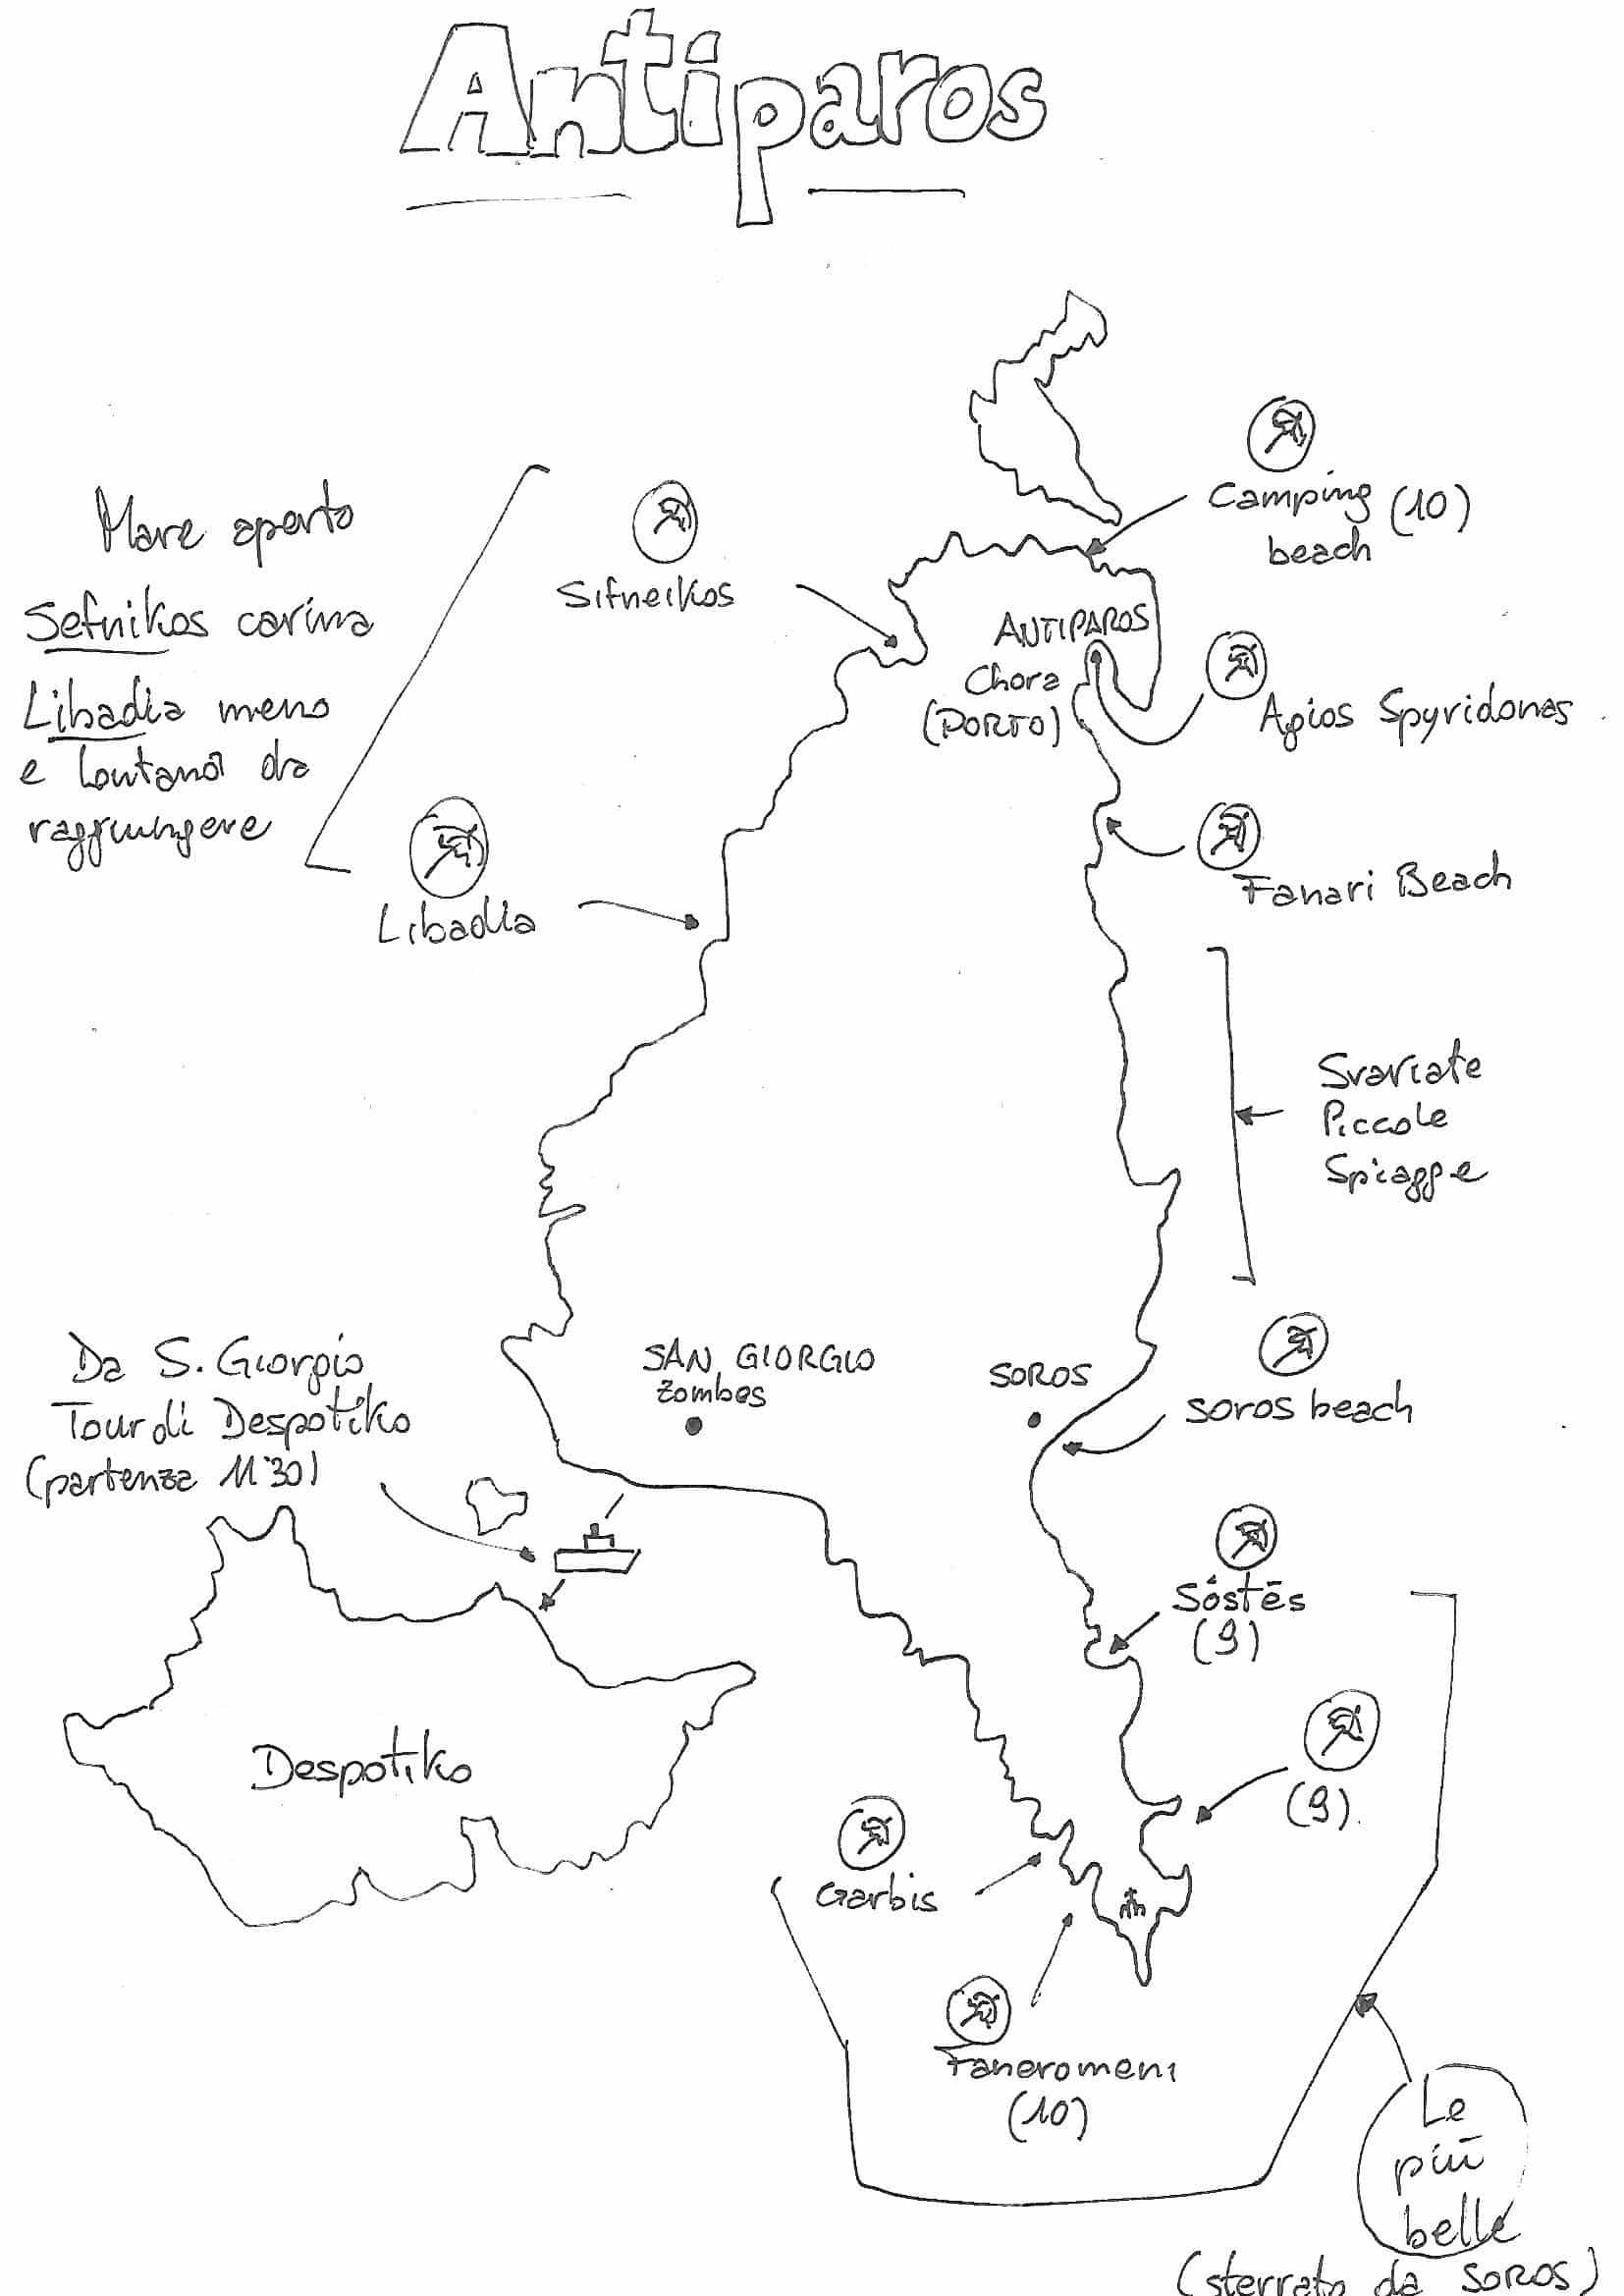 Antiparos
Camping (10)
beach
Mare aperto
Sefnikos carina
Libadia meno
e lontana da
raggiungere
Sifneikos
Libadia
ANTIPAROS
Chora
(PORTO)
Agios Spyridonas
Fanari Beach
Svariate
Piccole
Spiagge
Da S. Giorgio
Tour di Despotiko
(partenza 11:30)
SAN GIORGIO
Zombes
SOROS
soros beach
Sóstēs
(9)
(9).
Despotiko
Garbis
Faneromeni
(10)
Le
più
belle
(sterrato da SOROS)